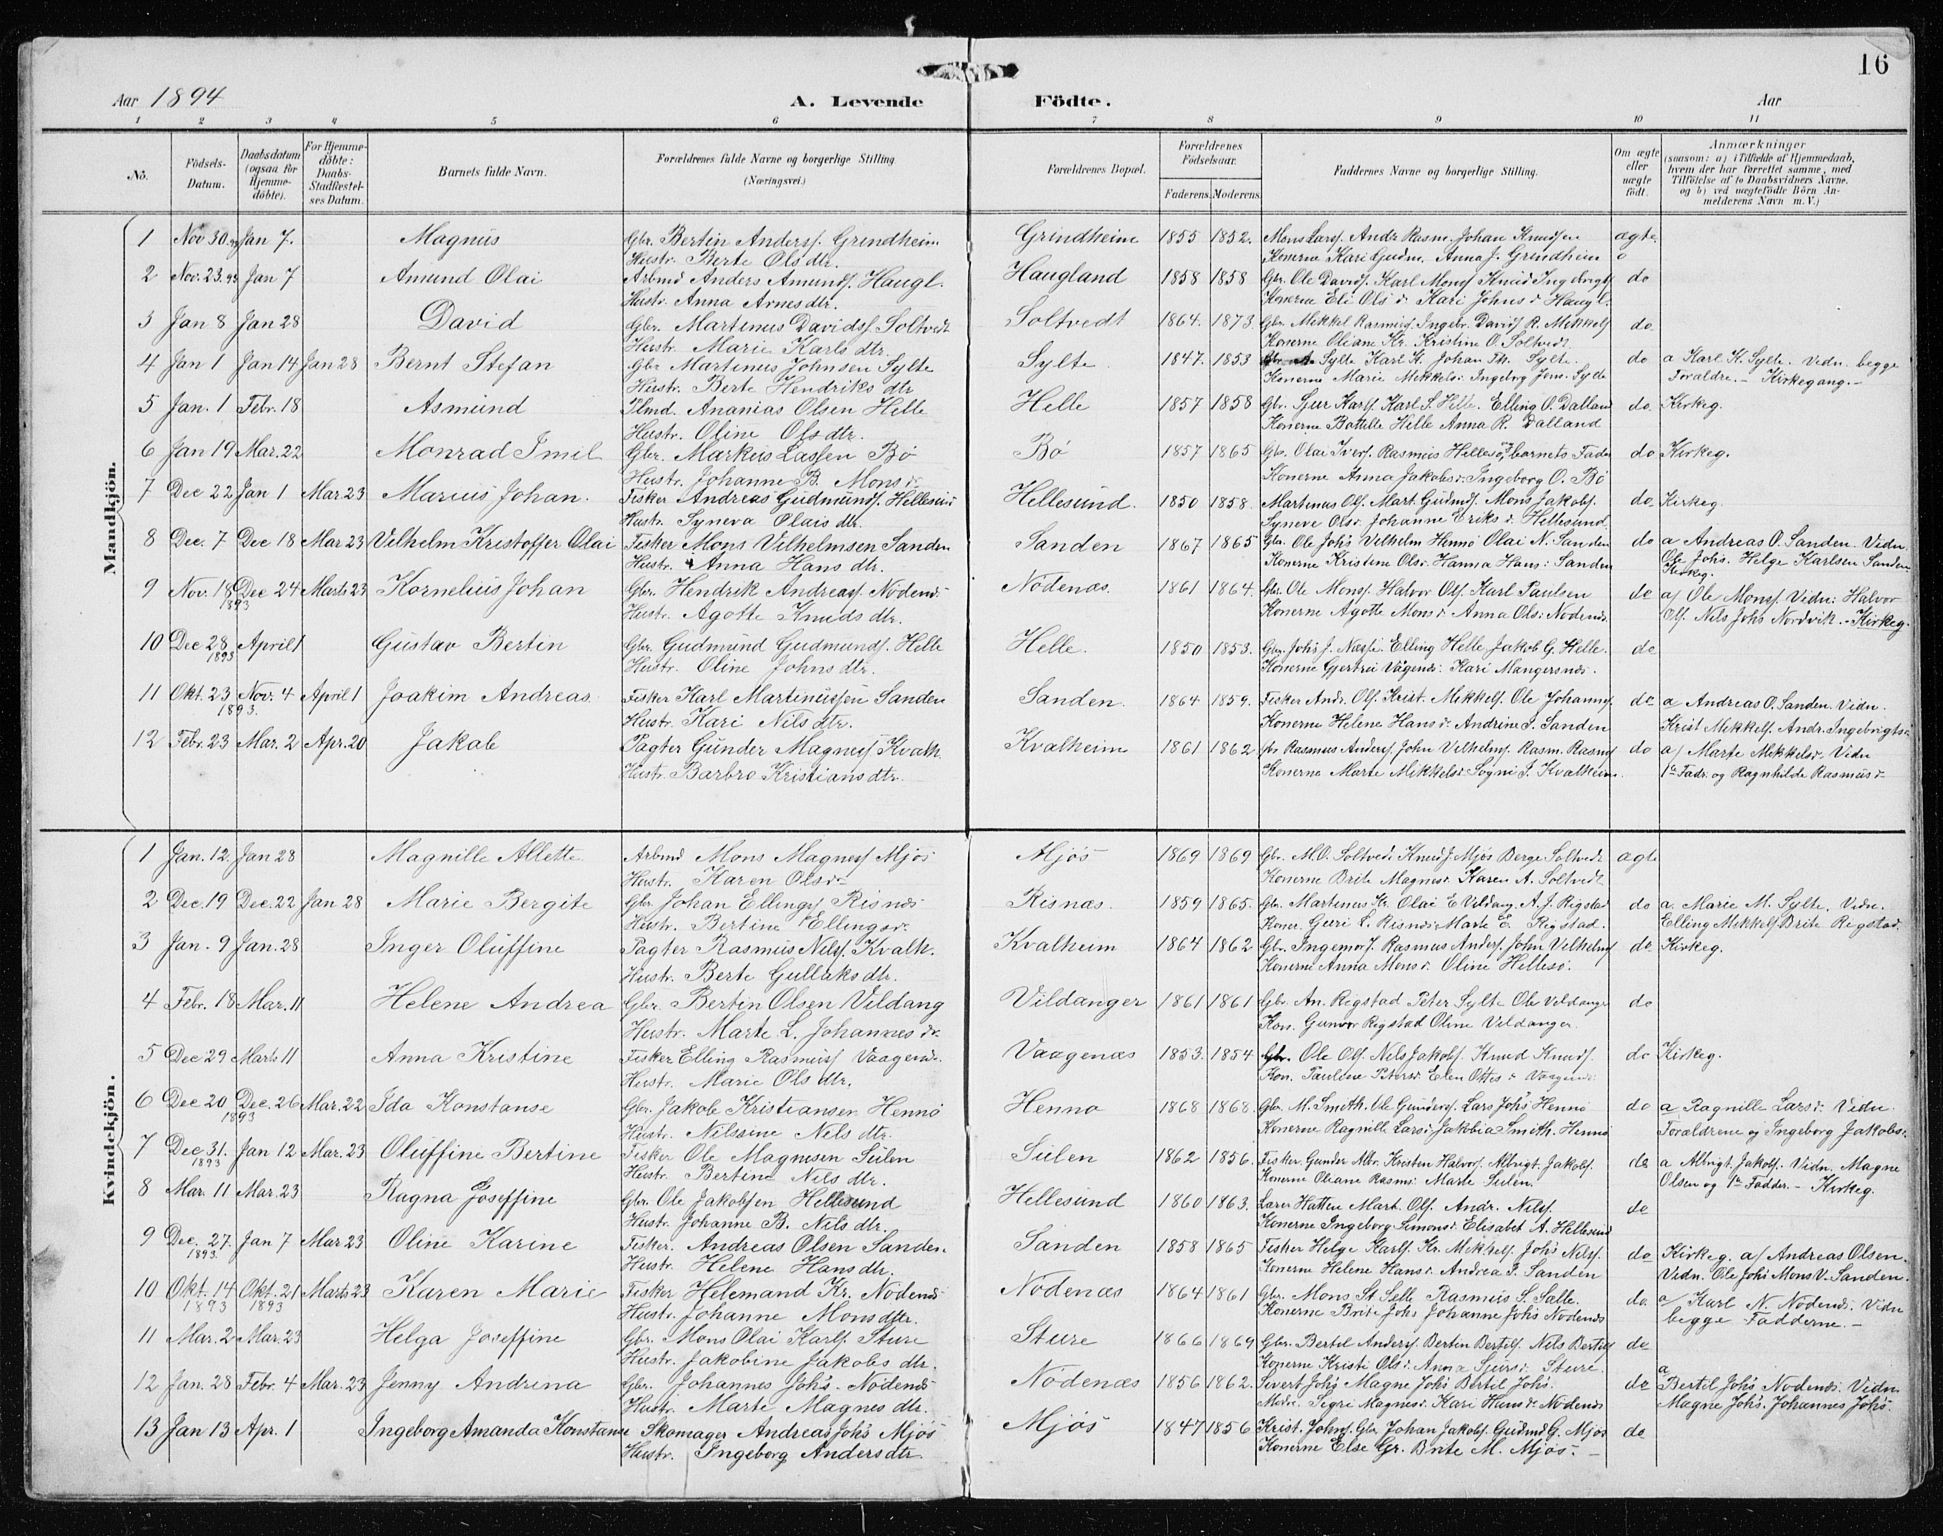 16
Aar 1894 A. Levende Födte. Aar
1 2 3 4 5 6 7 8 9 10 11
No. Födsels-Datum. Daabsdatum (ogsaa for Hjemmedöbte). For Hjemmedöbte: Daabs-Stadfæstelses Datum. Barnets fulde Navn. Forældrenes fulde Navne og borgerlige Stilling (Næringsvei.) Forældrenes Bopæl. Forældrenes Födselsaar. Faderens. Moderens. Faddernes Navne og borgerlige Stilling. Om ægte eller uægte födt. Anmærkninger (saasom: a) i Tilfælde af Hjemmedaab, hvem der har forrettet samme, med Tilföielse af to Daabsvidners Navne, og b) ved uægtefödte Börn Anmelderens Navn m. V.)
Mandkjön.
1 Nov 30. 93 Jan 7. Magnus Gbr. Bertin Anders. Grindheim Grindheim 1855 1852. Mons Lars. Andr Rasm. Johan Knudsen ægte
Hustr. Berte Ols dtr. Konerne Kari Gudm. Anna J. Grindheim
2 Nov. 23. 93 Jan 7 Amund Olai Arbmd Anders Amunds. Haugl. Haugland 1858 1858 Gbr. Ole Davids. Karl Mons. Knud Ingebrigts. do
Hustr. Anna Arnes dtr. Konerne Eli Ols d. Kari Johns d. Haugl.
3 Jan 8 Jan 28 David Gbr. Martinus Davids. Soltvedt Soltvedt 1864. 1873. Gbr. Mikkel Rasmus. Ingebr. Davids. R. Mikkels. do
Hustr. Marie Karls dtr. Konerne Oliane Kr. Kristine O. Soltvedt
4 Jan 1 Jan 14 Jan 28 Bernt Stefan Gbr Martinus Johnsen Sylte Sylte 1847. 1853 Sylte Karl K. Johan Th. Sylte. do a Karl K. Sylte. Vidn. begge
Hustr. Berte Hendriks dtr Konerne Marie Mekkels. Ingeborg Jons. Sylte Foraldre. - Kirkegang. -
5 Jan. 1 Febr. 18 Asmund Plmd. Ananias Olsen Helle Helle 1857 1858 Gbr. Sjur Karls. Karl S. Helle. Elling O. Dalland do Kirkeg.
Hustr. Oline Ols dtr. Konerne Botille Helle Anna R. Dalland
6 Jan 19 Mar. 22 Monrad Imil Gbr. Markus Lassen Bø Bø 1857 1865 Gbr. Olai Ivers. Rasmus Hellesø, barnets Fader do Kirkeg.
Hustr. Johanne B. Mons d. Konerne Anna Jakobs d. Ingeborg O. Bø
7 Dec 22 Jan 1 Mar. 23 Marius Johan. Fisker Andreas Gudmunds. Hellesund Hellesund. 1850 1858. Martinus Ols. Mart. Gudmds. Mons Jakobs. do Kirkeg.
Hustr. Syneva Olais dtr. Syneve Olsd. Johanne Eriks d. Hellesund.
8 Dec. 7 Dec 18 Mar 23 Vilhelm Kristoffer Olai Fisker Mons Vilhelmsen Sanden Sanden 1867 1865 Gbr. Ole Johs Vilhelm Hennø Olai N. Sanden do a Andreas O. Sanden. Vidn
Hustr. Anna Hans dtr. Konerne Kristine Ols. Hanna Hans. Sanden Ole Johs. Helge Karlsen Sanden Kirkeg.
9 Nov. 18 1893 Dec 24 Marts 23 Kornelius Johan Gbr. Hendrik Andreas. Nödenæs Nödenæs. 1861 1864. Gbr. Ole Mons. Halvor Ols. Karl Paulsen do a/ Ole Mons. Vidn: Halvor
Hustr. Agotte Knuds dtr. Konerne Agotte Mons d. Anna Ols. Nodenæs. Ols. Nils Johs Nordvik. - Kirkeg.
10 Dec 28 1893 April 1 Gustav Bertin Gbr. Gudmund Gudmunds. Helle Helle. 1850 1853. Gbr. Johs J. Næsse Elling Helle Jakob G. Helle. do
Hustr. Oline Johns dtr. Konerne Gjertrü Vågenæs Kari Mangersnæs.
11 Okt. 23 1893. Nov. 4 April 1 Joakim Andreas Fisker Karl Martinussen Sanden Sanden. 1864 1859. Fisker Andr. Ols. Krist. Mekkels. Ole Johanns. do a Andreas O. Sanden. Vidn.
Hustr. Kari Nils dtr. Konerne Helene Hans d. Andrine J. Sanden Krist Mekkels. Andr. Ingebrigts.
12 Febr. 23 Mar. 2 Apr. 20 Jakob Pagter Gunder Magnes. Kvalh. Kvalheim 1861 1862 Gbr Rasmus Anders. John Vilhelms. Rasm. Rasms. do a/ Marte Mekkels. Vidn
Hustr. Barbro Kristians dtr. Konerne Marte Mekkels. Sogni J. Kvalheim. 1ste Fadr. og Ragnhilde Rasmus d.
Kvindekjön.
1 Jan. 12. Jan 28 Magnille Allette Arbmd Mons Magnes. Mjös Mjös 1869 1869 Gbr. M. O. Soltvedt Knud J. Mjös Berge Soltvedt ægte
Hustr. Karen Ols d. Konerne Brite Magnes. Karen A. Soltvedt
2 Dec. 19 Dec. 22 Jan 28 Marie Bergite Gbr Johan Ellings. Risnæs Risnæs. 1859 1865. Gbr. Martinus Kr. Olai E Vildang. A. J. Rigstad do a. Marie M. Sylte. Vidn.
Hustr. Bertine Ellings d. Koner. Guri L. Risnæs Marte E. Rigstad. Elling Mekkels. Brite Rigstad.
3 Jan. 9 Jan. 28 Inger Oluffine Pagter Rasmus Nils. Kvalh. Kvalheim 1864 1862 Gbr. Ingemor J. Rasmus Anders. John Vilhelms. do Kirkeg.
Hustr. Berte Gullaks dtr. Konerne Anna Mons d. Oline Hellesø.
4 Febr. 18 Mar. 11 Helene Andrea Gbr. Bertin Olsen Vildang Vildanger 1861 1861 Gbr. An. Rigstad Peter Sylte Ole Vildanger do
Hustr. Marte L. Johannes d. Kon. Gunvor Rigstad Oline Vildanger.
5 Dec 29 Marts 11 Anna Kristine Fisker Elling Rasmus. Vaagenæs. Vaagenæs 1853. 1854 Gbr. Ole Ols. Nils Jakobs. Knud Knuds. do Kirkeg.
Hustr. Marie Ols dtr. Kon. Pauline Peters d. Elen Ottes d. Vaagenæs
6 Dec 20 Dec. 26 1893 Mar. 22 Ida Konstanse Gbr. Jakob Kristiansen Hennø Henno 1868 1868. Gbr. M. Smith. Ole Gunders. Lars Johs Hennø do a Ragnille Lars d. Vidn
Hustr. Nilssine Nels dtr. Konerne Ragnille Lars d. Jakobia Smith. Hennø Foraldrene og Ingeborg Jakobs.
7 Dec 31. 1893 Jan 12 Mar. 23 Oluffine Bertine Fisker Ole Magnesen Suilen Suilen 1862 1856. Fisker Gunder Albr. Kristen Halvor. Albrigt. Jakobs. do a Albrigt Jakobs. Vidn. Magne
Hustr. Bertine Nils dtr. Konerne Oliane Rasms. Marte Suilen. Olsen og 1ste Fadder. - Kirkeg.
8 Mar. 11 Mar. 23 Ragna Joseffine Gbr. Ole Jakobsen Hellesund Hellesund 1860 1863. Lærer Hatten Mart. Ols. Andr. Nils. do
Hustr. Johanne B. Nils dtr. Konerne Ingeborg Simons d. Elisabet A. Hellesund
9 Dec. 27. 1893. Jan 7 Mar 23 Oline Karine Fisker. Andreas Olsen Sanden. Sanden 1858 1865 Fisker Helge Karls. Kr. Mekkels. Johs Nils. do Kirkeg. a/ Andreas Olsen.
Hustr. Helene Hans dtr. Konerne Helene Hans d. Andrea J. Sanden Vidn. Ole Johs Mons V. Sanden.
10 Okt. 14 1893 Okt. 21 1893 Marts 23 Karen Marie Fisker Helemand Kr. Nödenæs Nödenæs 1864 1861 Gbr. Mons St Selle Rasmus S. Salle. do. a/ Karl N. Nodenæs. Vidn
Hustr. Johanne Mons dtr. Konerne Brite Johs Johanne Johs Nödenæs begge Fadderne. -
11 Mar. 2 Mar. 23 Helga Joseffine Gbr. Mons Olai Karls. Sture Sture 1866 1869 Gbr. Bertel Anders. Bertin Bertels. Nils Bertels. do
Hustr. Jakobine Jakobs dtr. Konerne Kristi Ols d. Anna Sjurs d. Sture
12 Jan. 28 Febr. 4 Mar. 23 Jenny Andrina Gbr. Johannes Johs. Nödenæs Nödenæs 1856 1862. Sivert Johs Magne Johs Bertil Johs. do a Bertil Johs Nodenæs. Vidn.
Hustr. Marte Magnes dtr. Segri Magnes d. Kari Hans d. Nödenæs Magne Johs. Johannes Johs.
13 Jan 13 Apr. 1 Ingeborg Amanda Konstanse Skomager Andreas Johs Mjös Mjös 1847 1856 Krist. Johns. Gbr. Johan Jakobs. Gudmd G. Mjös do
Hustr. Ingeborg Anders dtr Konerne Else Gr. Brite M. Mjös. -